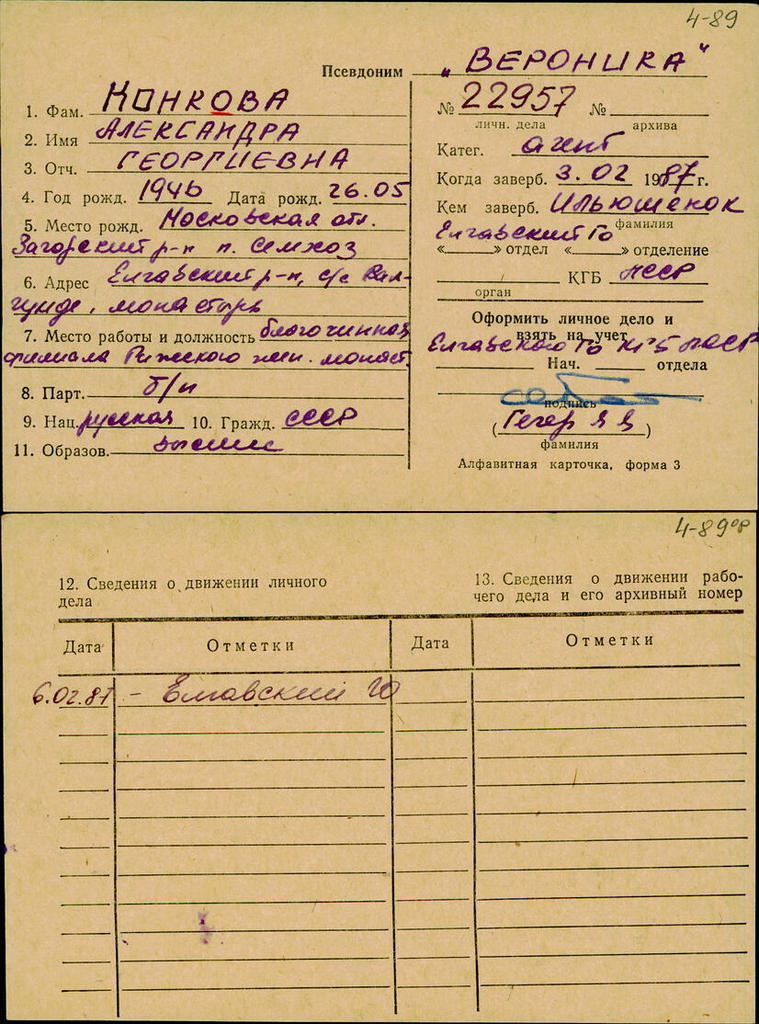 4-89
Псевдоним „ВЕРОНИКА"
1. Фам. КОНКОВА
2. Имя АЛЕКСАНДРА
3. Отч. ГЕОРГИЕВНА
4. Год рожд. 1946 Дата рожд. 26.05
5. Место рожд. Московская обл.
Загорский р-н п. Семхоз
6. Адрес Елгавский р-н, с/с Вал-
гунде, монастырь
7. Место работы и должность благочинная
филиала Рижского жен. монаст.
8. Парт. б/п
9. Нац. русская 10. Гражд. СССР
11. Образов. высшее
№ 22957 №
личн. дела архива
Катег. агент
Когда заверб. 3.02 1987 г.
Кем заверб. ИЛЬЮШЕНОК
фамилия
Елгавский ГО
«» отдел «» отделение
КГБ ЛССР
орган
Оформить личное дело и
взять на учет
Елгавского ГО КГБ ЛССР
Нач. отдела
подпись
(Гегер Я Я)
фамилия
Алфавитная карточка, форма 3
4-89 об
12. Сведения о движении личного
дела
13. Сведения о движении рабо-
чего дела и его архивный номер
Дата Отметки Дата Отметки
6.02.87 - Елгавский ГО